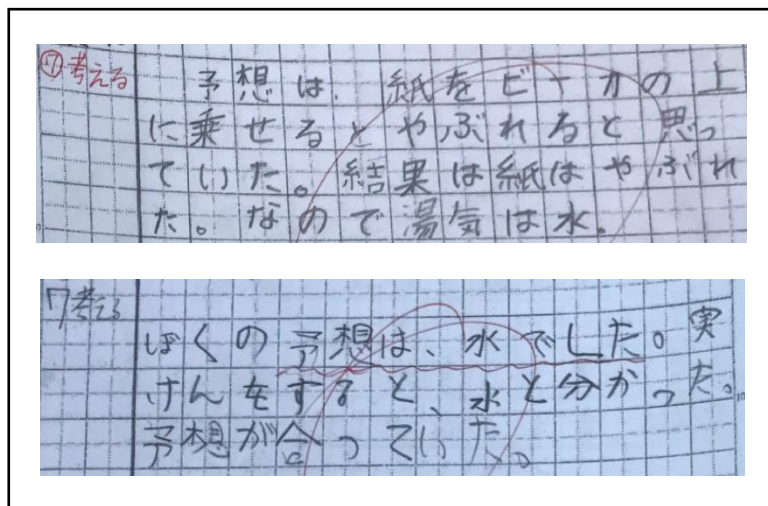 ⑦考える
予想は、紙をビーカの上
に乗せるとやぶれると思っ
ていた。結果は紙はやぶれ
た。なので湯気は水。
7考える
ぼくの予想は、水でした。実
けんをすると、水と分かった。
予想が合っていた。